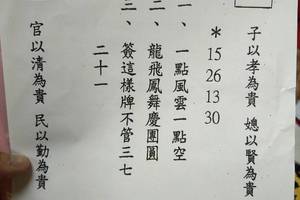 子以孝為貴 媳以賢為貴
*15 26 13 30
一、一點風雲一點空
二、龍飛鳳舞慶團圓
三、簽這樣牌不管三七
二十一
官以清為貴 民以勤為貴